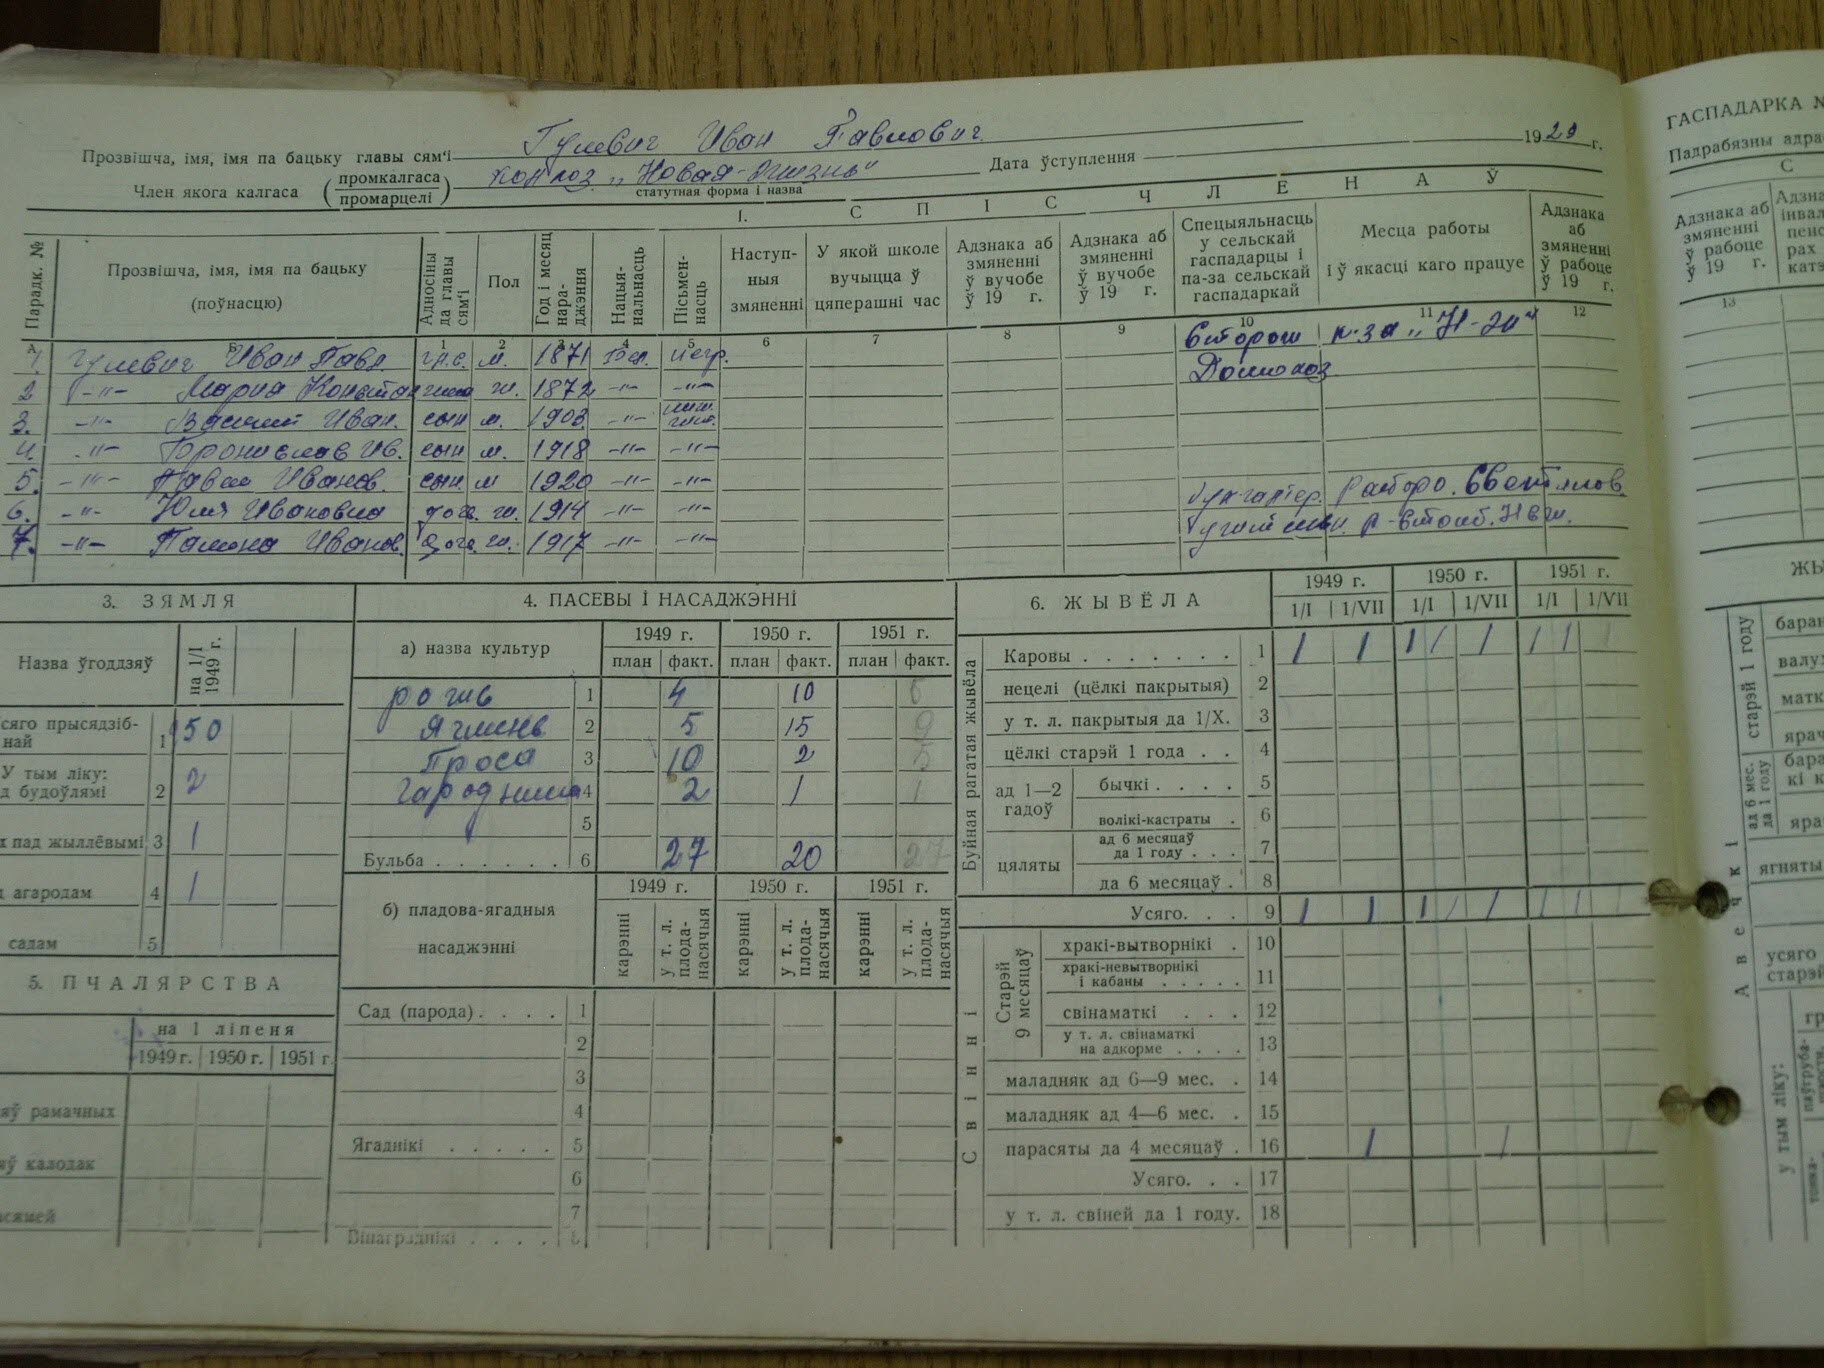 Гулевич Иван Павлович
Прозвішча, імя, імя па бацьку главы сям'і 1929 г.
колхоз „Новая-Жизнь" Дата ўступлення
Член якога калгаса (промкалгаса промарцелі) статутная форма і назва
І. СПІС ЧЛЕНАЎ
Парадк. № Прозвішча, імя, імя па бацьку (поўнасцю) Адносіны да главы сям'і Пол Год і месяц нараджэння Нацыянальнасць Пісьменнасць Наступныя змяненні У якой школе вучыцца ў цяперашні час Адзнака аб змяненні ў вучобе ў 19 г. Адзнака аб змяненні ў вучобе ў 19 г. Спецыяльнасць у сельскай гаспадарцы і па-за сельскай гаспадаркай Месца работы і ў якасці каго працуе Адзнака аб змяненні ў рабоце ў 19 г.
А Б 1 2 3 4 5 6 7 8 9 10 11 12
1. Гулевич Иван Павл. м. 1871 сторож
2 -"- Мария жена ж. 1872 -"- -"- Домохоз
3. -"- Василий Иван. сын м. 1903 -"-
4. -"- Бронислав Ив. сын м. 1918 -"- -"-
5. -"- Павел Иванов. сын м 1920 -"- -"-
6. -"- Юлия Ивановна доч. ж. 1914 -"- -"- бухгалтер.
7. -"- Иванов. доч. ж. 1917 -"- -"-
3. ЗЯМЛЯ
Назва ўгоддзяў на 1/I 1949 г.
сяго прысядзібнай 1 50
У тым ліку:
д будоўлямі 2 2
х пад жыллёвымі 3 1
д агародам 4 1
садам 5
5. ПЧАЛЯРСТВА
на 1 ліпеня
1949 г. 1950 г. 1951 г.
яў рамачных
яў калодак
4. ПАСЕВЫ І НАСАДЖЭННІ
а) назва культур 1949 г. 1950 г. 1951 г.
план факт. план факт. план факт.
рожь 1 4 10 6
Ячмень 2 5 15 9
Проса 3 10 2 5
4 2 1 1
5
Бульба . . . . . . 6 27 20 27
б) пладова-ягадныя насаджэнні 1949 г. 1950 г. 1951 г.
карэнні у т. л. плоданасячыя карэнні у т. л. плоданасячыя карэнні у т. л. плоданасячыя
Сад (парода) . . . . 1
2
3
4
Ягаднікі . . . . . 5
6
7
Вінаграднікі . . . . 8
6. ЖЫВЁЛА 1949 г. 1950 г. 1951 г.
1/I 1/VII 1/I 1/VII 1/I 1/VII
Буйная рагатая жывёла
Каровы . . . . . . . 1 1 1 1 1 1 1 1 1
нецелі (цёлкі пакрытыя) 2
у т. л. пакрытыя да 1/X. 3
цёлкі старэй 1 года . . 4
ад 1—2 гадоў бычкі . . . . 5
волікі-кастраты . 6
цяляты ад 6 месяцаў да 1 году . . . 7
да 6 месяцаў . 8
Усяго. . . 9 1 1 1 1 1 1 1 1
Свінні
Старэй 9 месяцаў
хракі-вытворнікі . 10
хракі-невытворнікі і кабаны . . . . . 11
свінаматкі . . . 12
у т. л. свінаматкі на адкорме . . . . 13
маладняк ад 6—9 мес. . 14
маладняк ад 4—6 мес. . 15
парасяты да 4 месяцаў . 16 1 1 1
Усяго. . . 17
у т. л. свіней да 1 году. 18
ГАСПАДАРКА №
Падрабязны адра
С
Адзнака аб змяненні ў рабоце ў 19 г.
13
ЖЫ
Авечкі
старэй 1 году
баран
валух
матк
ярач
ад 6 мес. да 1 году
бара
кі к
яра
ягняты
усяго
старэй
у тым ліку: